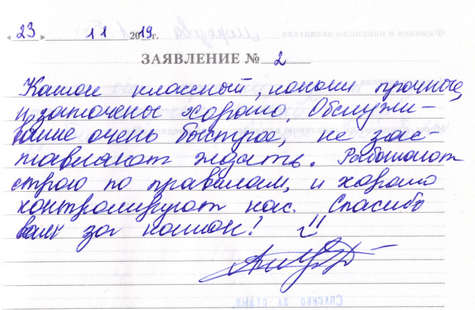 „23" 11 2019г.
ЗАЯВЛЕНИЕ № 2
Каток классный, коньки прочные,
и заточены хорошо. Обслужи-
вание очень быстрое, не зас-
тавляют ждать. Работают
строго по правилам, и хорошо
контролируют нас. Спасибо
вам за каток!